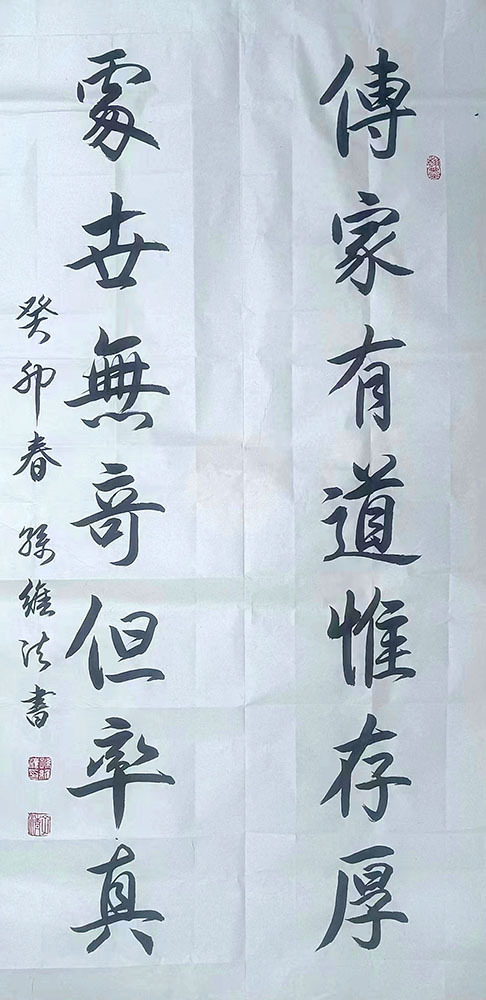 傳家有道惟存厚
處世無奇但率真
癸卯春 孫維法書